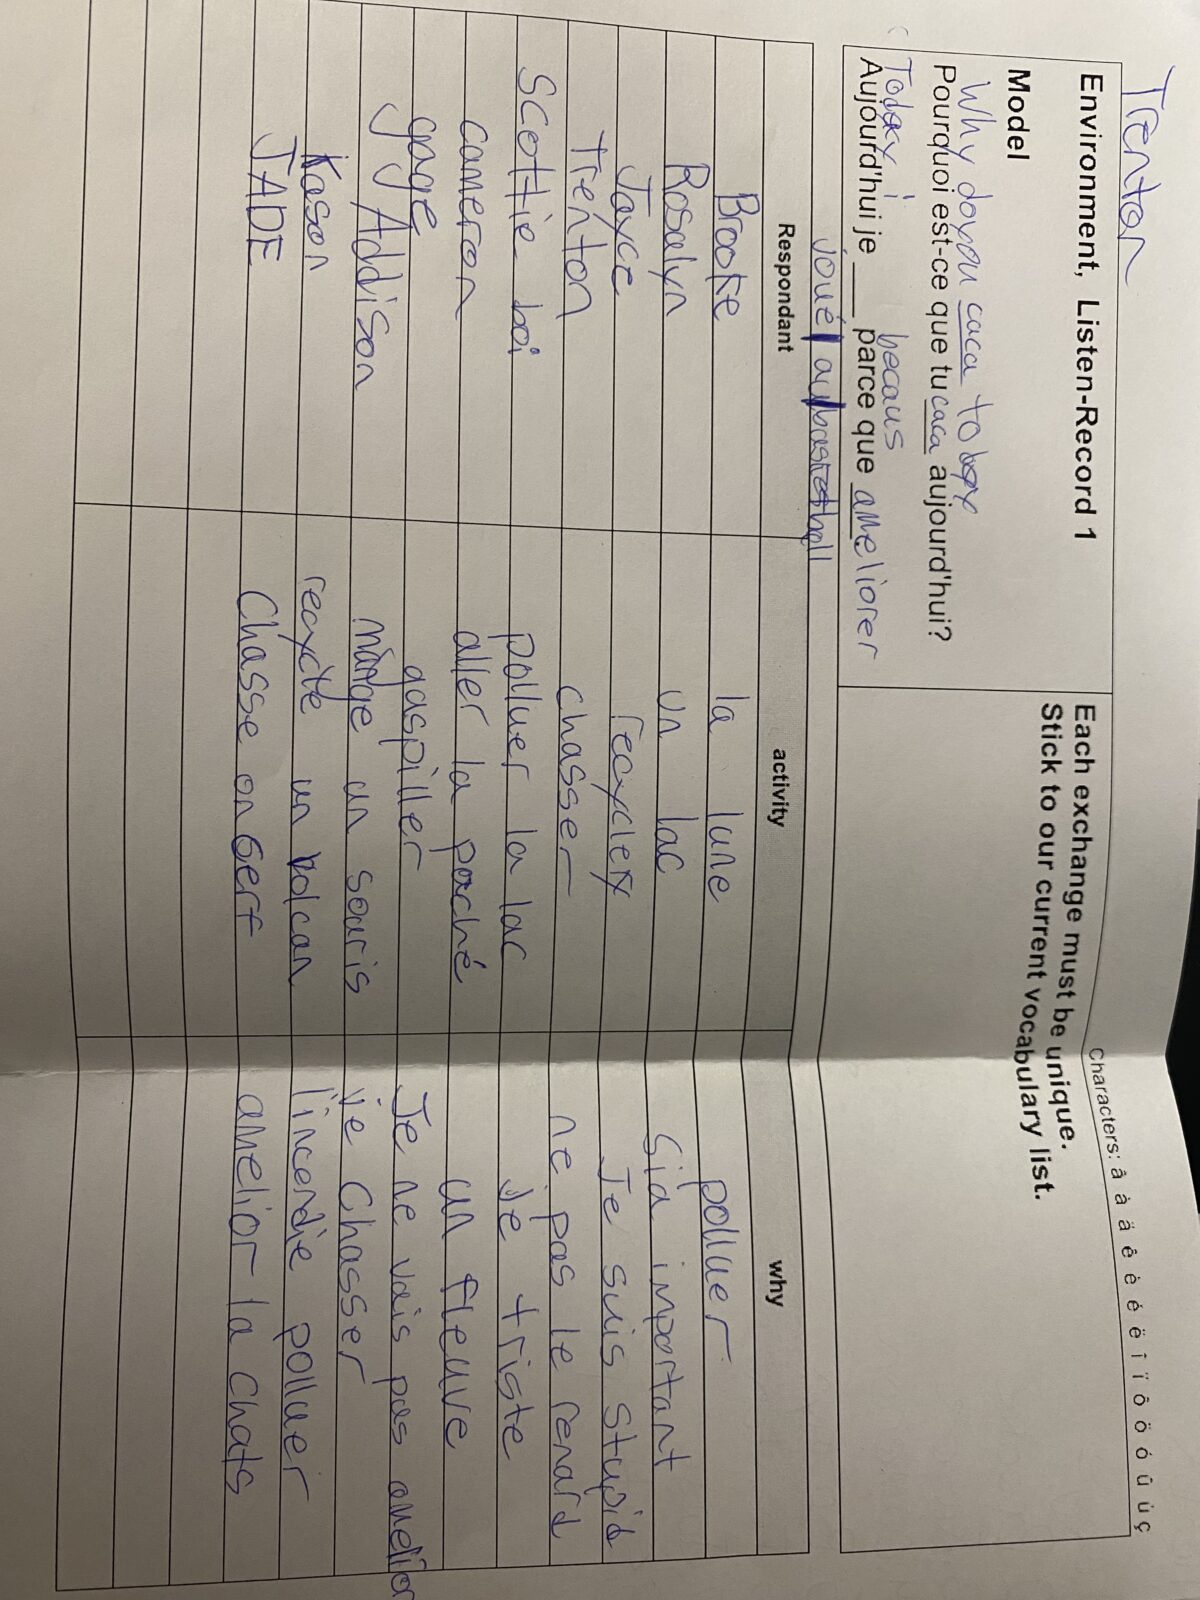 Trenton
Characters: â à ä ê è é ë î ï ô ö ó û ú ç
Environment, Listen-Record 1
Each exchange must be unique.
Stick to our current vocabulary list.
Model
Why do you caca to
Pourquoi est-ce que tu caca aujourd'hui?
Today i becaus
Aujourd'hui je ____ parce que ameliorer
joué au basketball
Respondant activity why
Brooke la lune polluer
Rosalyn un lac Sia important
Jayce recycler Je suis stupid
Trenton chasser ne pas le renard
Scottie boi polluer la lac je triste
cameron aller la poché un fleuve
gage gaspiller Je ne vais pas amelior
Addison mange un souris je Chasser
Kason recycle un volcan l'incendie polluer
JADE Chasse on Gerf amelior la chats